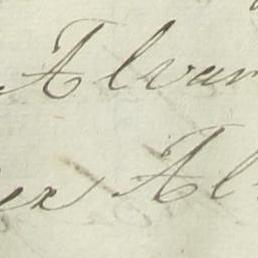 Alvar
ez Al